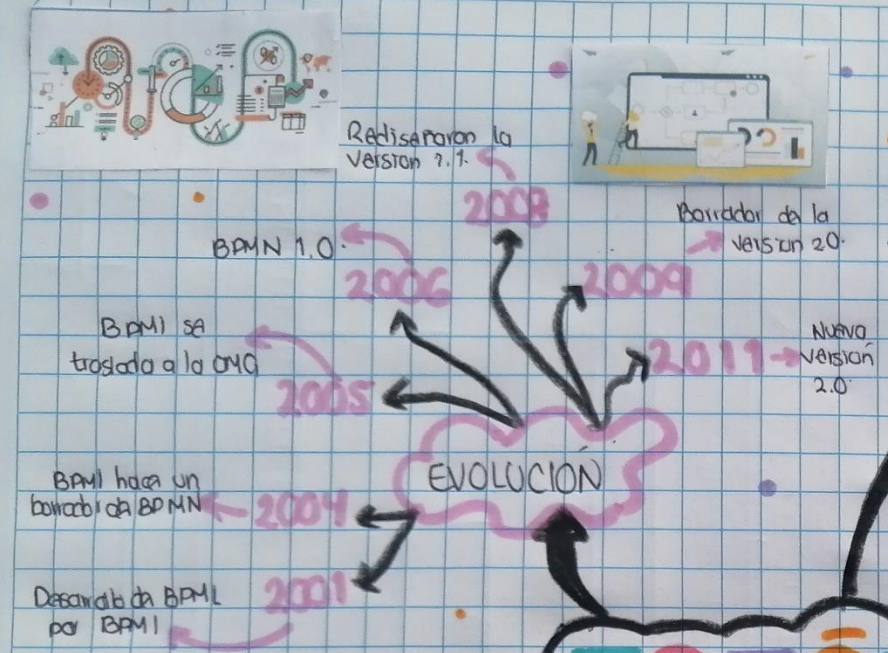 Rediseñaron la
version 1.1.
2008
Borrador de la
version 2.0.
BPMN 1.0.
2006
2009
BPMI se
traslada a la OMG
2005
2011
Nueva
versión
2.0
EVOLUCIÓN
BPMI hace un
borrador de BPMN
2004
Desarrollo de BPML
por BPMI
2001